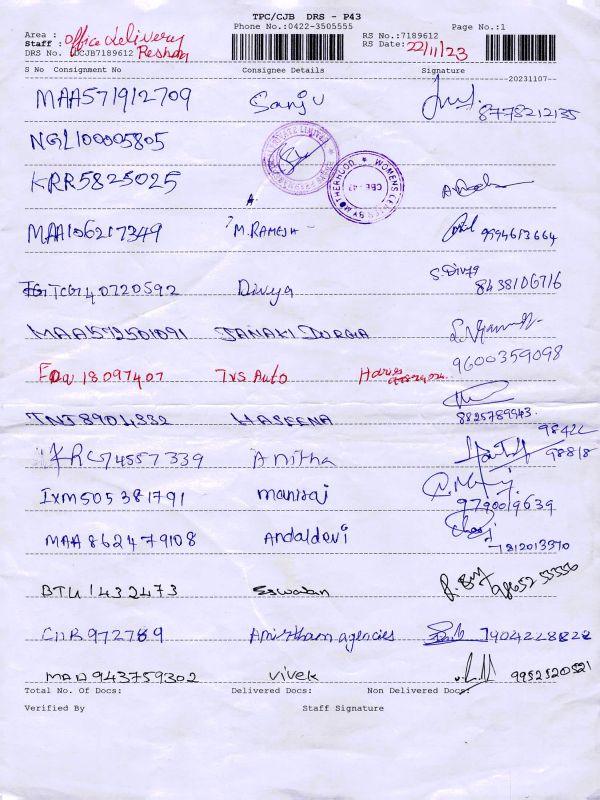 TPC/CJB DRS - P43
Phone No.:0422-3505555 Page No.:1
Area : office delivery RS No.:7189612
Staff : Reshma RS Date: 22/11/23
DRS No. CJB7189612
S No Consignment No Consignee Details Signature
20231107
MAA571912709 Sanju 8778212135
NGL100005805
KRR5825025 A.
MAA106217349 M. RAMESH 9994613664
TCG140720592 Divya S. Divya 8438106716
MAA572501091 JANAKI DURGA 9600359098
18097407 TVS Auto
TNJ8901332 HASEENA 8825789943
KRG74557339 Anitha 98422 98818
IXM505381791 maniraj 9790019639
MAA862479108 Andaldevi 7812013370
BTU1432473 Eswaran 98652 55556
CHR972789 Amirtham agencies 7904228822
MAA943759302 vivek 9952520521
Total No. Of Docs: Delivered Docs: Non Delivered Docs:
Verified By Staff Signature
WOMENS CENTER BY MOTHERHOOD
PRIVATE LIMITED